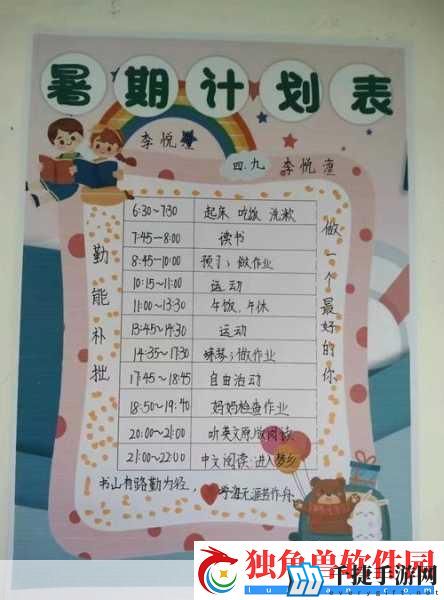 暑期计划表
李悦潼
四.九 李悦潼
勤能补拙
6:30~7:30 起床 吃饭 洗漱
7:45—8:00 读书
8:45~10:00 预习；做作业
10:15~11:00 运动
11:00~13:30 午饭、午休
13:45~14:30 运动
14:35~17:30 练琴；做作业
17:45~18:45 自由活动
18:50~19:40 妈妈检查作业
20:00~21:00 听英文原版阅读
21:00~22:00 中文阅读·进入梦乡
做一个最好的你
书山有路勤为径，学海无涯苦作舟。
独角兽软件园
千捷手游网